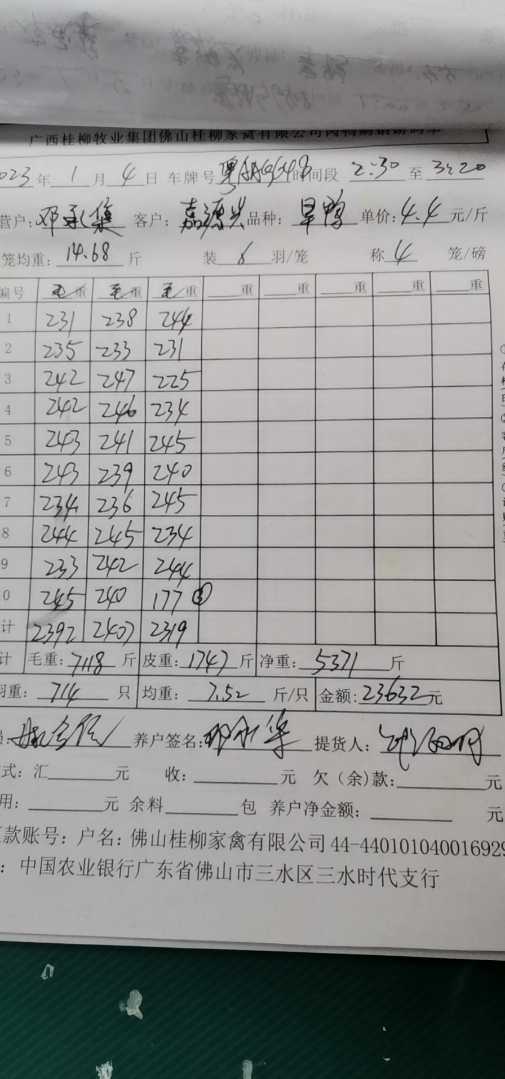 广西桂柳牧业集团佛山桂柳家禽有限公司
2023 年 1 月 4 日 车牌号 时间段 2:30 至 3:20
营户: 邓永集 客户: 嘉源兴 品种: 旱鸭 单价: 4.4 元/斤
笼均重: 14.68 斤 装 6 羽/笼 称 4 笼/磅
编号 毛重 毛重 毛重 重 重 重 重 重
1 231 238 244
2 235 233 231
3 242 247 225
4 242 246 234
5 243 241 245
6 243 239 240
7 234 236 245
8 244 245 234
9 233 242 244
0 245 240 177 ③
计 2392 2407 2319
计 毛重: 7118 斤 皮重: 1747 斤 净重: 5371 斤
羽重: 714 只 均重: 7.52 斤/只 金额: 23632 元
养户签名: 提货人:
式: 汇 元 收: 元 欠 (余) 款: 元
用: 元 余料 包 养户净金额: 元
款账号: 户名: 佛山桂柳家禽有限公司 44-440101040016929
: 中国农业银行广东省佛山市三水区三水时代支行